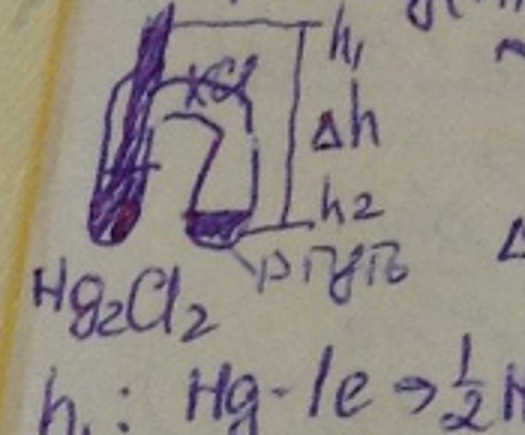 h₁
KCl
Δh
h2
ртуть
Hg₂Cl₂
h₁: Hg - 1e → 1/2